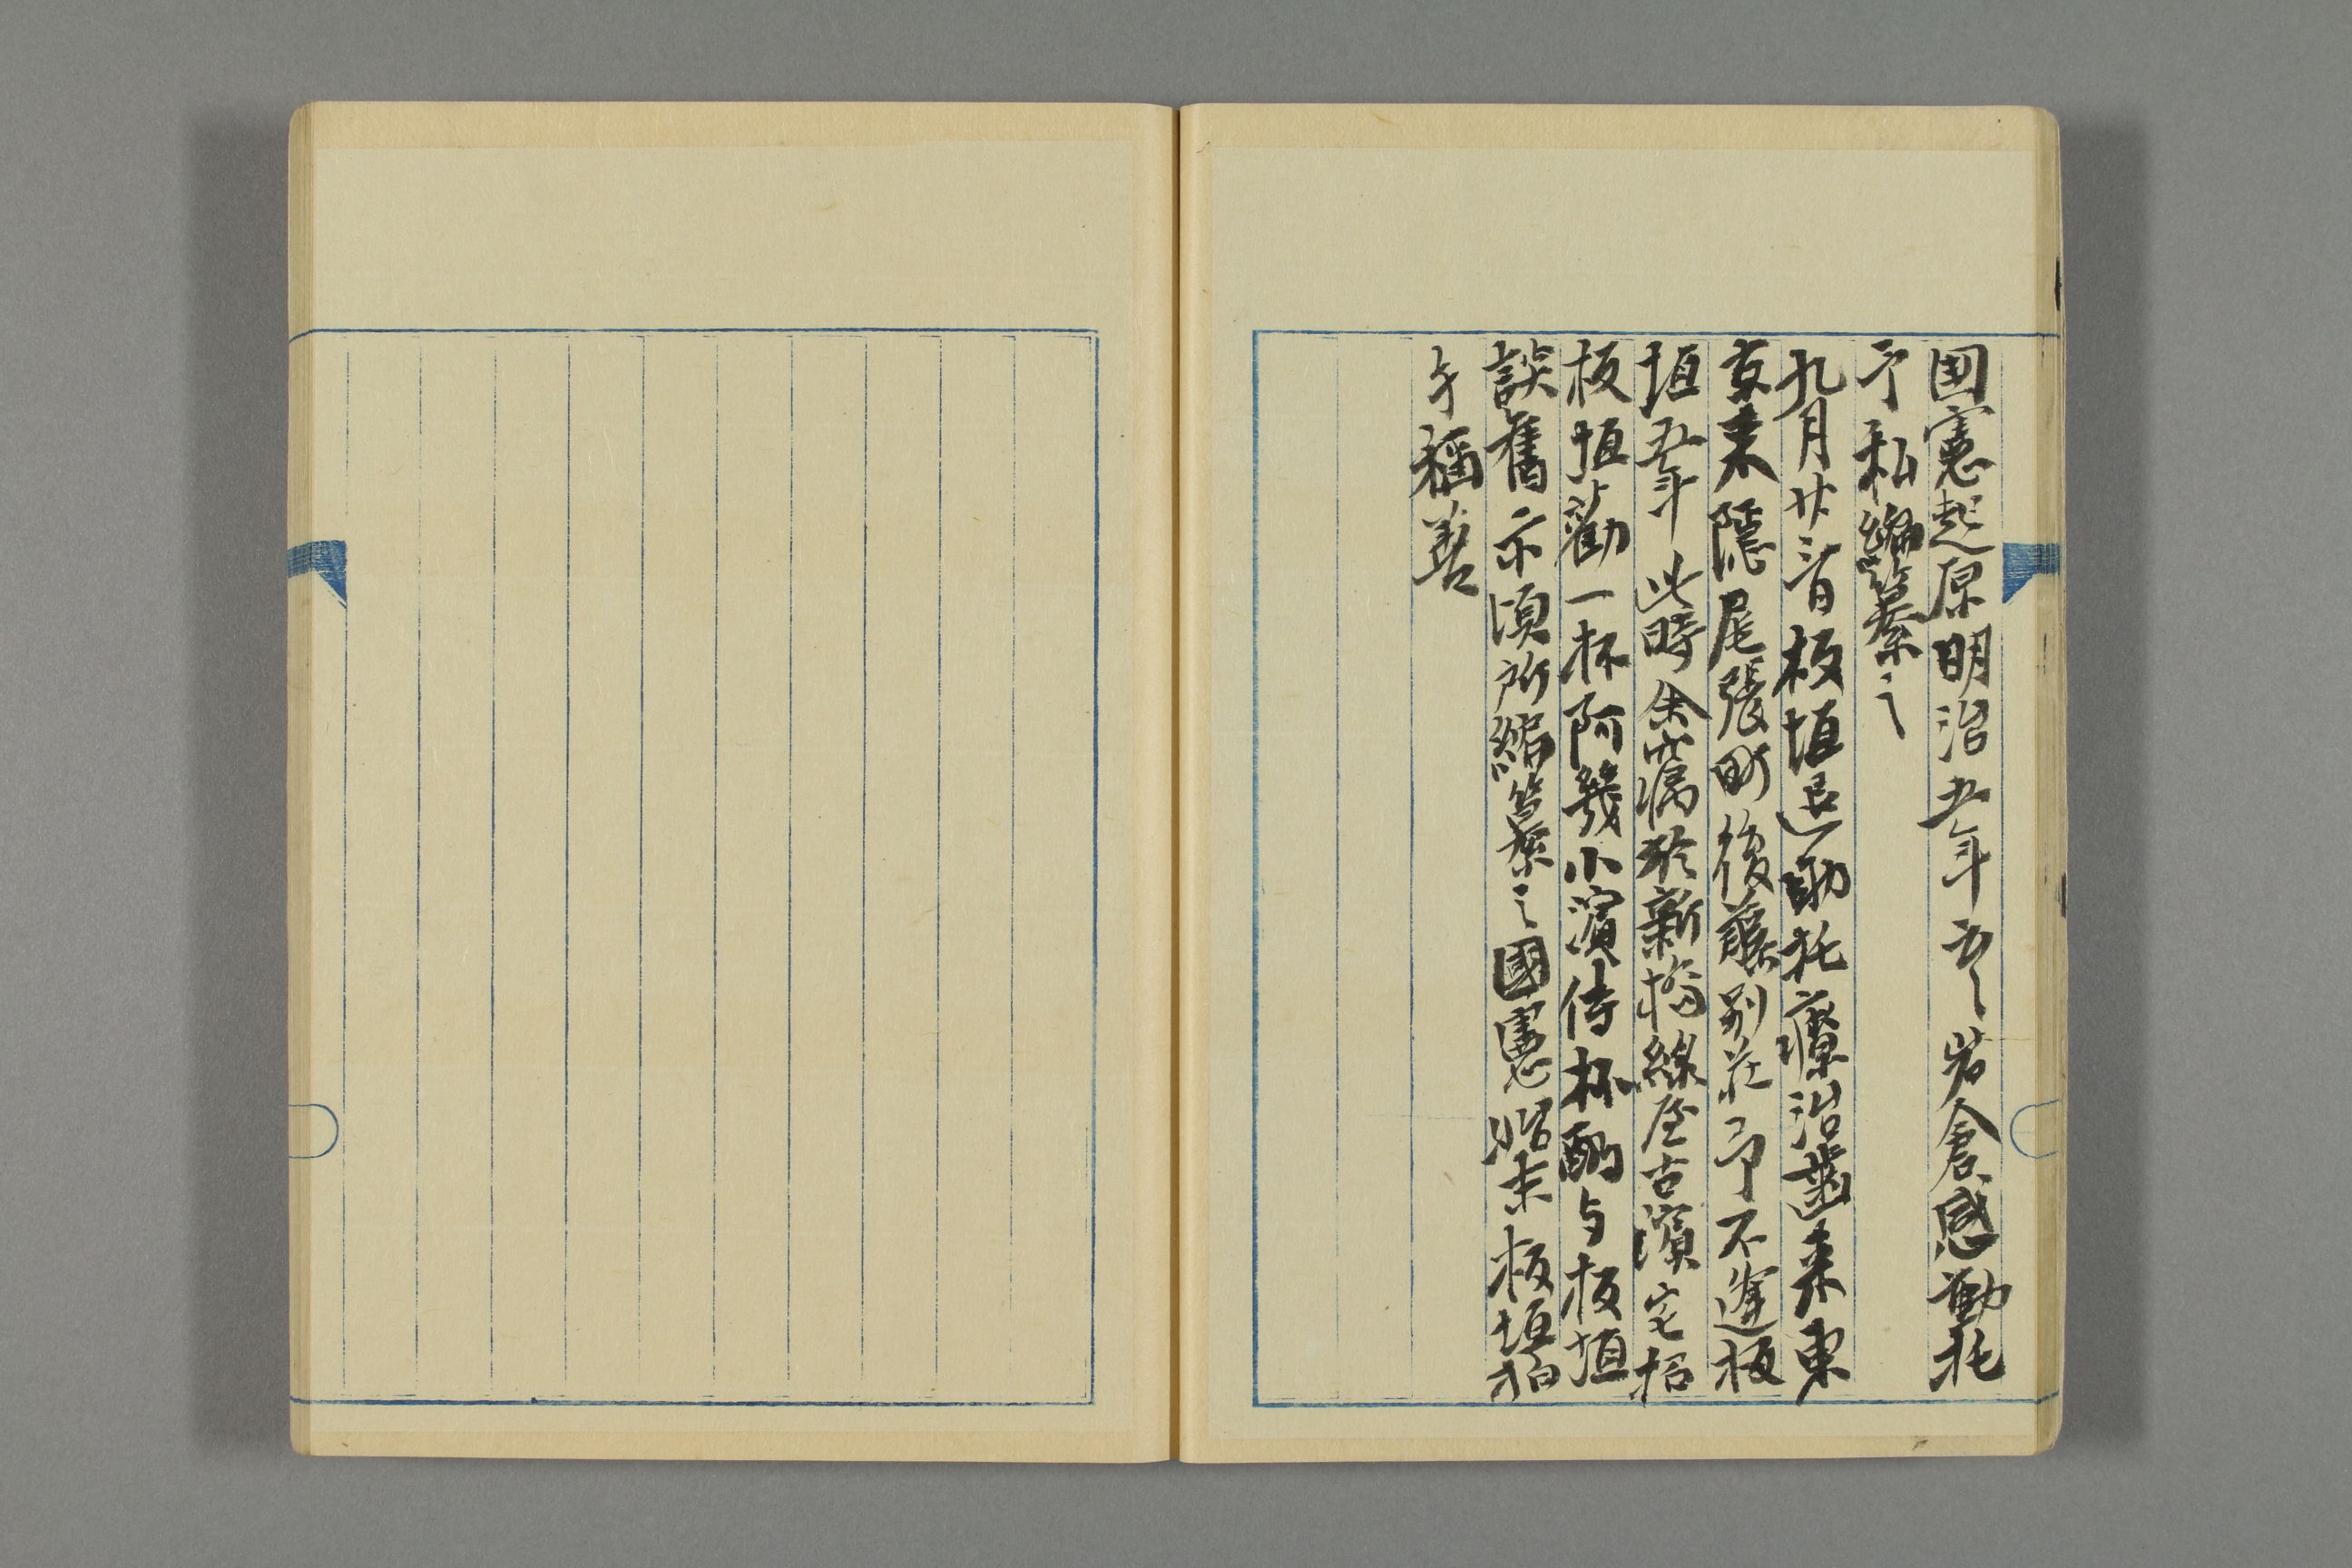 国憲起原明治五年云〻岩倉感動托
予私編纂之
九月廿三日板垣退助托療治歯来東
京来隠尾張町後藤別荘予不逢板
垣五年此時余寓於新橋線屋古濱宅招
板垣勧一杯阿幾小濱侍杯酌与板垣
談舊示頃所編纂之國憲始末板垣拍
手稱善